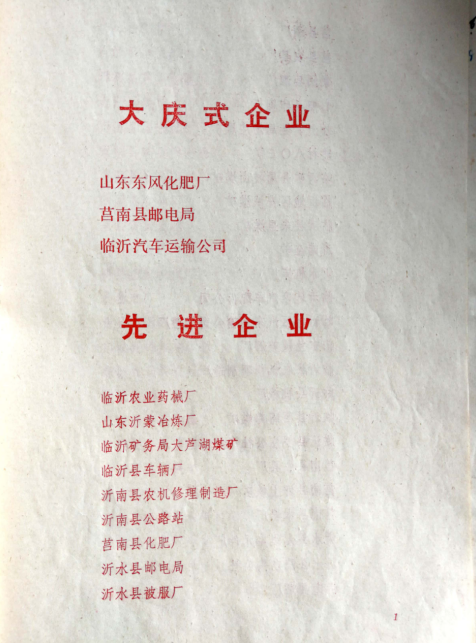 大庆式企业
山东东风化肥厂
莒南县邮电局
临沂汽车运输公司
先进企业
临沂农业药械厂
山东沂蒙冶炼厂
临沂矿务局大芦湖煤矿
临沂县车辆厂
沂南县农机修理制造厂
沂南县公路站
莒南县化肥厂
沂水县邮电局
沂水县被服厂
1